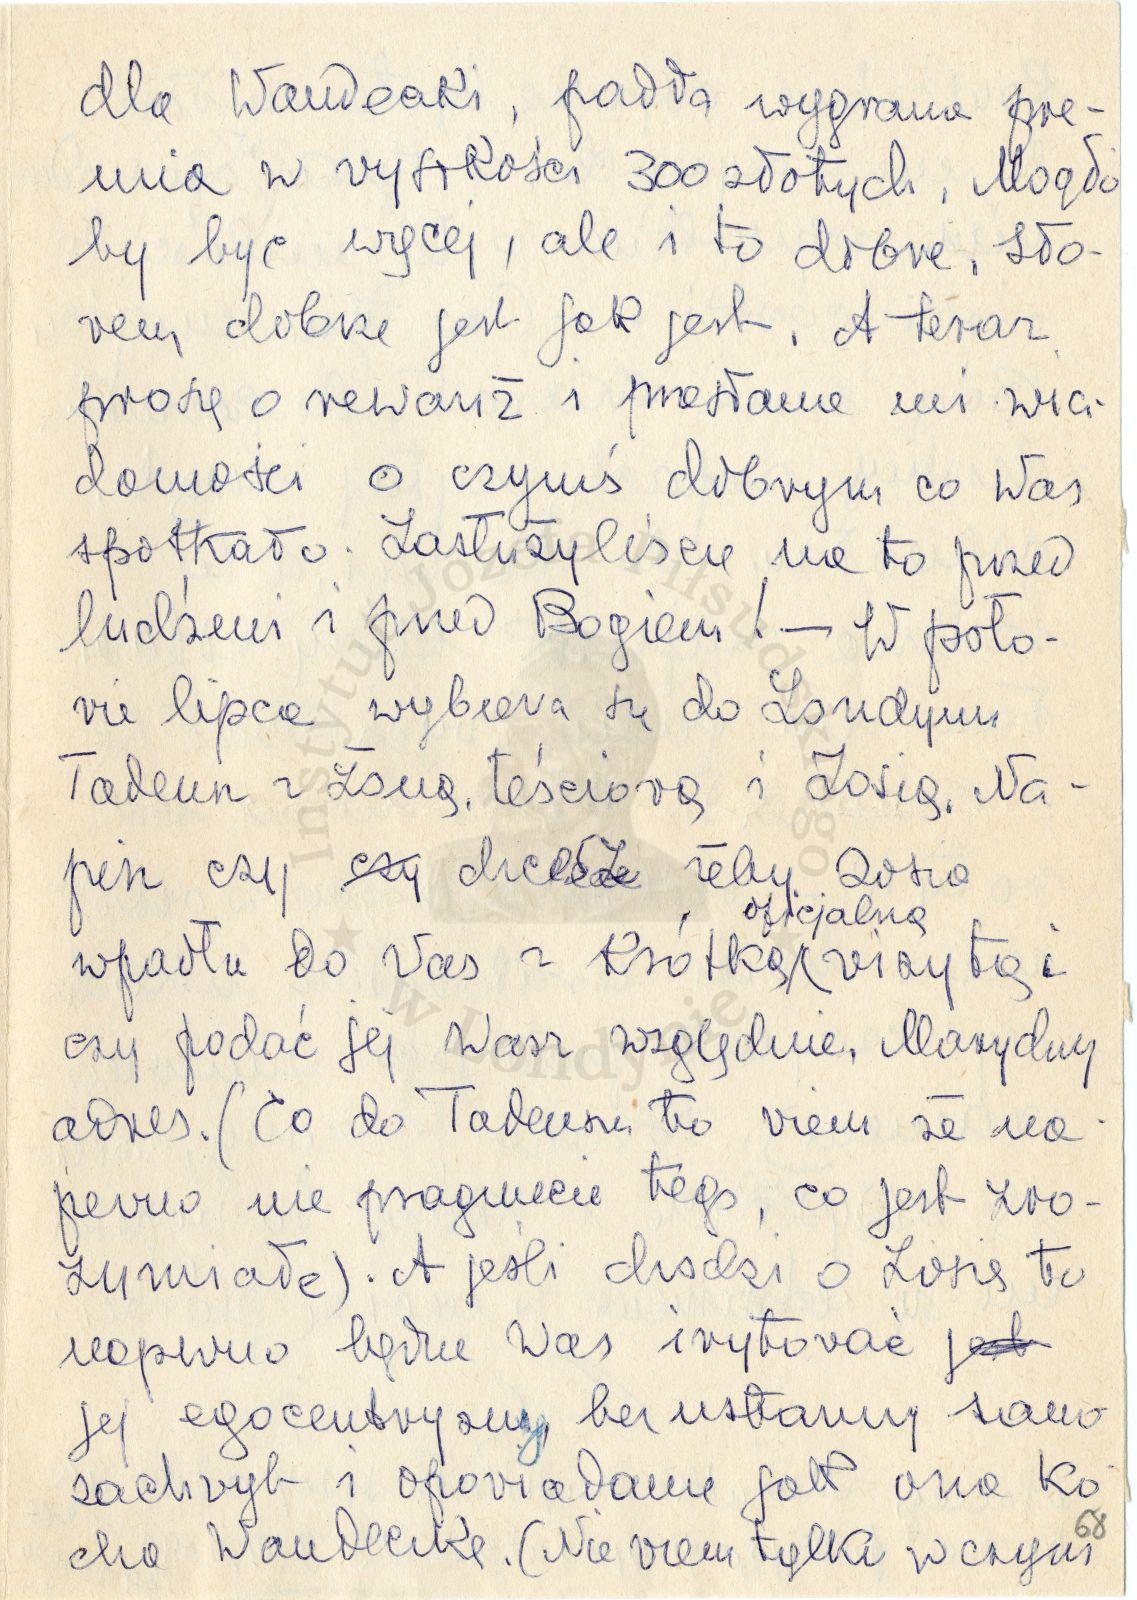 dla Wandeczki, padła wygrana pre-
mia w wysokości 300 złotych. Mogło
by być więcej, ale i to dobre. Sło-
wem dobrze jest jak jest. A teraz
proszę o rewanż i przesłanie mi wia-
domości o czymś dobrym co Was
spotkało. Zasłużyliście na to przed
ludźmi i przed Bogiem! — W poło-
wie lipca wybiera się do Londynu
Tadeusz z żoną, teściową i Zosią. Na-
pisz czy czy chce żeby Zosia
oficjalną
wpadła do Was z krótką wizytą i
czy podać jej Wasz względnie. Marydny
adres. (Co do Tadeusza to wiem że na-
pewno nie pragniecie tego, co jest zro-
zumiałe). A jeśli chodzi o Zosię to
napewno będzie Was irytować
jej egocentryzm, bezustanny samo
zachwyt i opowiadanie jak ona ko
cha Wandeczkę. (Nie wiem tylko w czym
68
Instytut Józefa Piłsudskiego
★ w Londynie